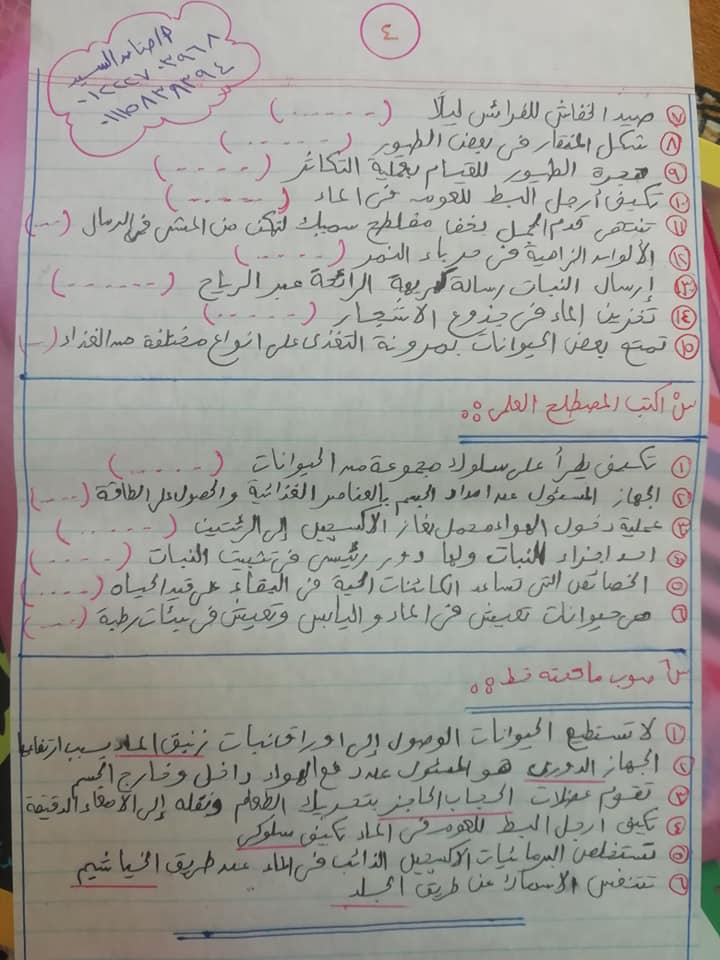 ٤
٠١٢٢٢٧٠٣٩٦٨
٠١١٥٨٣٨٣٩٤
٧ صيد الخفاش للفرائس ليلًا (-----)
٨ شكل المنقار فى بعض الطيور (-----)
٩ هجرة الطيور للقيام بعملية التكاثر (----)
١٠ تكيف أرجل البط للعوم فى الماء (-----)
١١ تنتهى قدم الجمل بخف مفلطح سميك لتمكن من المشى فى الرمال (---)
١٢ الألوان الزاهية فى حرباء النمر (-----)
١٣ إرسال النبات رسالة كريهة الرائحة عبر الرياح (------)
١٤ تخزين الماء فى جذوع الاشجار (-----)
١٥ تمتع بعض الحيوانات بمرونة التغذى على انواع مختلفة من الغذاء (---)
س٥ اكتب المصطلح العلمى :
١ تكيف يطرأ على سلوك مجموعة من الحيوانات (-----)
٢ الجهاز المسئول عن امداد الجسم بالعناصر الغذائية والحصول على الطاقة (----)
٣ عملية دخول الهواء محمل بغاز الأكسجين إلى الرئتين (-----)
٤ احد اجزاء النبات ولها دور رئيسى فى تثبيت النبات (-----)
٥ الخصائص التى تساعد الكائنات الحية فى البقاء على قيد الحياه (----)
٦ هى حيوانات تعيش فى الماء واليابس وتعيش فى بيئات رطبة (---)
س٦ صوب ما تحته خط :
١ لا تستطيع الحيوانات الوصول إلى اوراق نبات زنبق الماء بسبب ارتفاعها
٢ الجهاز الدورى هو المسئول عن دفع الهواء داخل وخارج الجسم
٣ تقوم عضلات الحجاب الحاجز بتحريك الطعام ونقله إلى الأمعاء الدقيقة
٤ تكيف ارجل البط للعوم فى الماء تكيف سلوكى
٥ تستخلص البرمائيات الاكسجين الذائب فى الماء عن طريق الخياشيم
٦ تتنفس الاسماك عن طريق الجلد